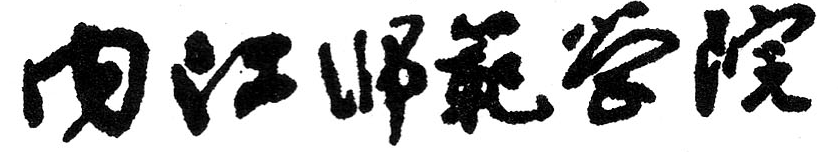 内江师范学院